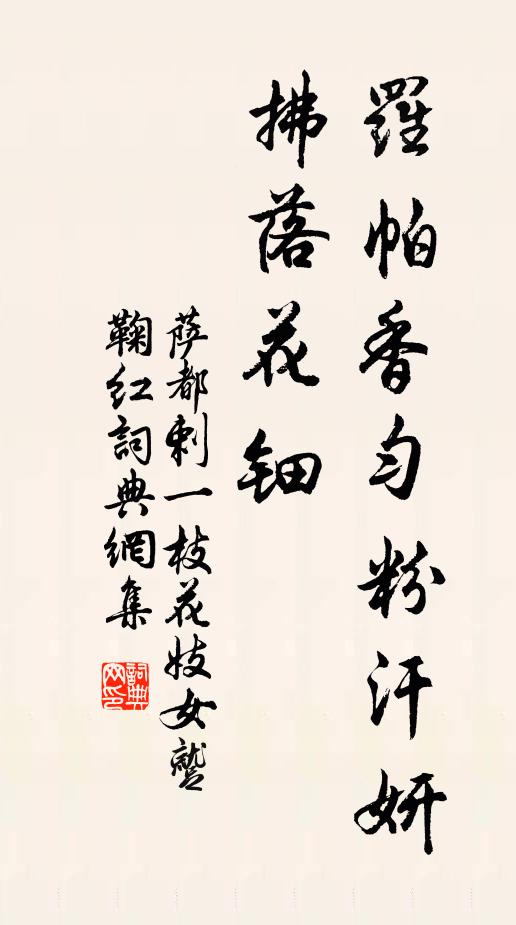 羅帕香勻粉汗妍
拂落花鈿
薩都剌一枝花妓女蹵
鞠紅詞典網集
詞典网印